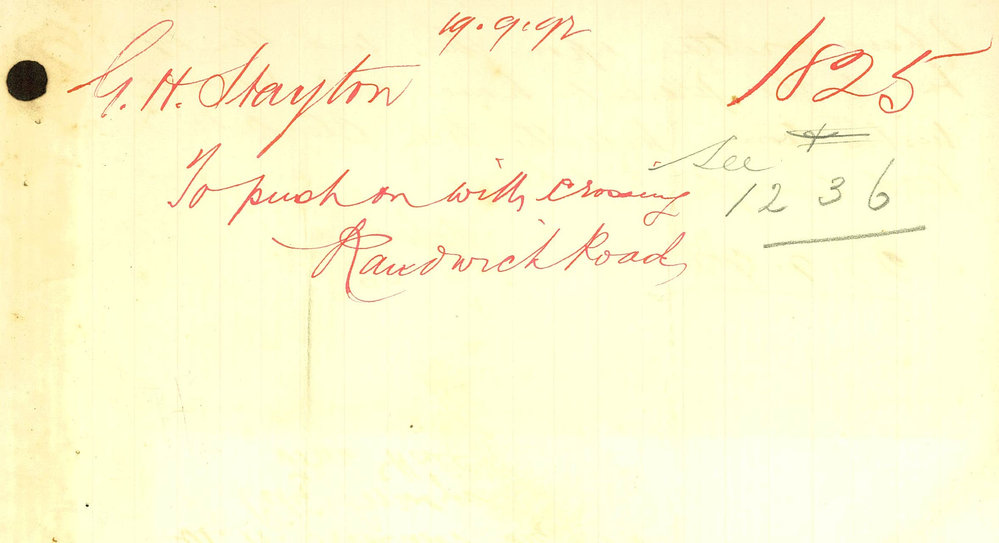 19.9.92
G. H. Stayton 1825
To push on with crossing See
1236
Randwick Road